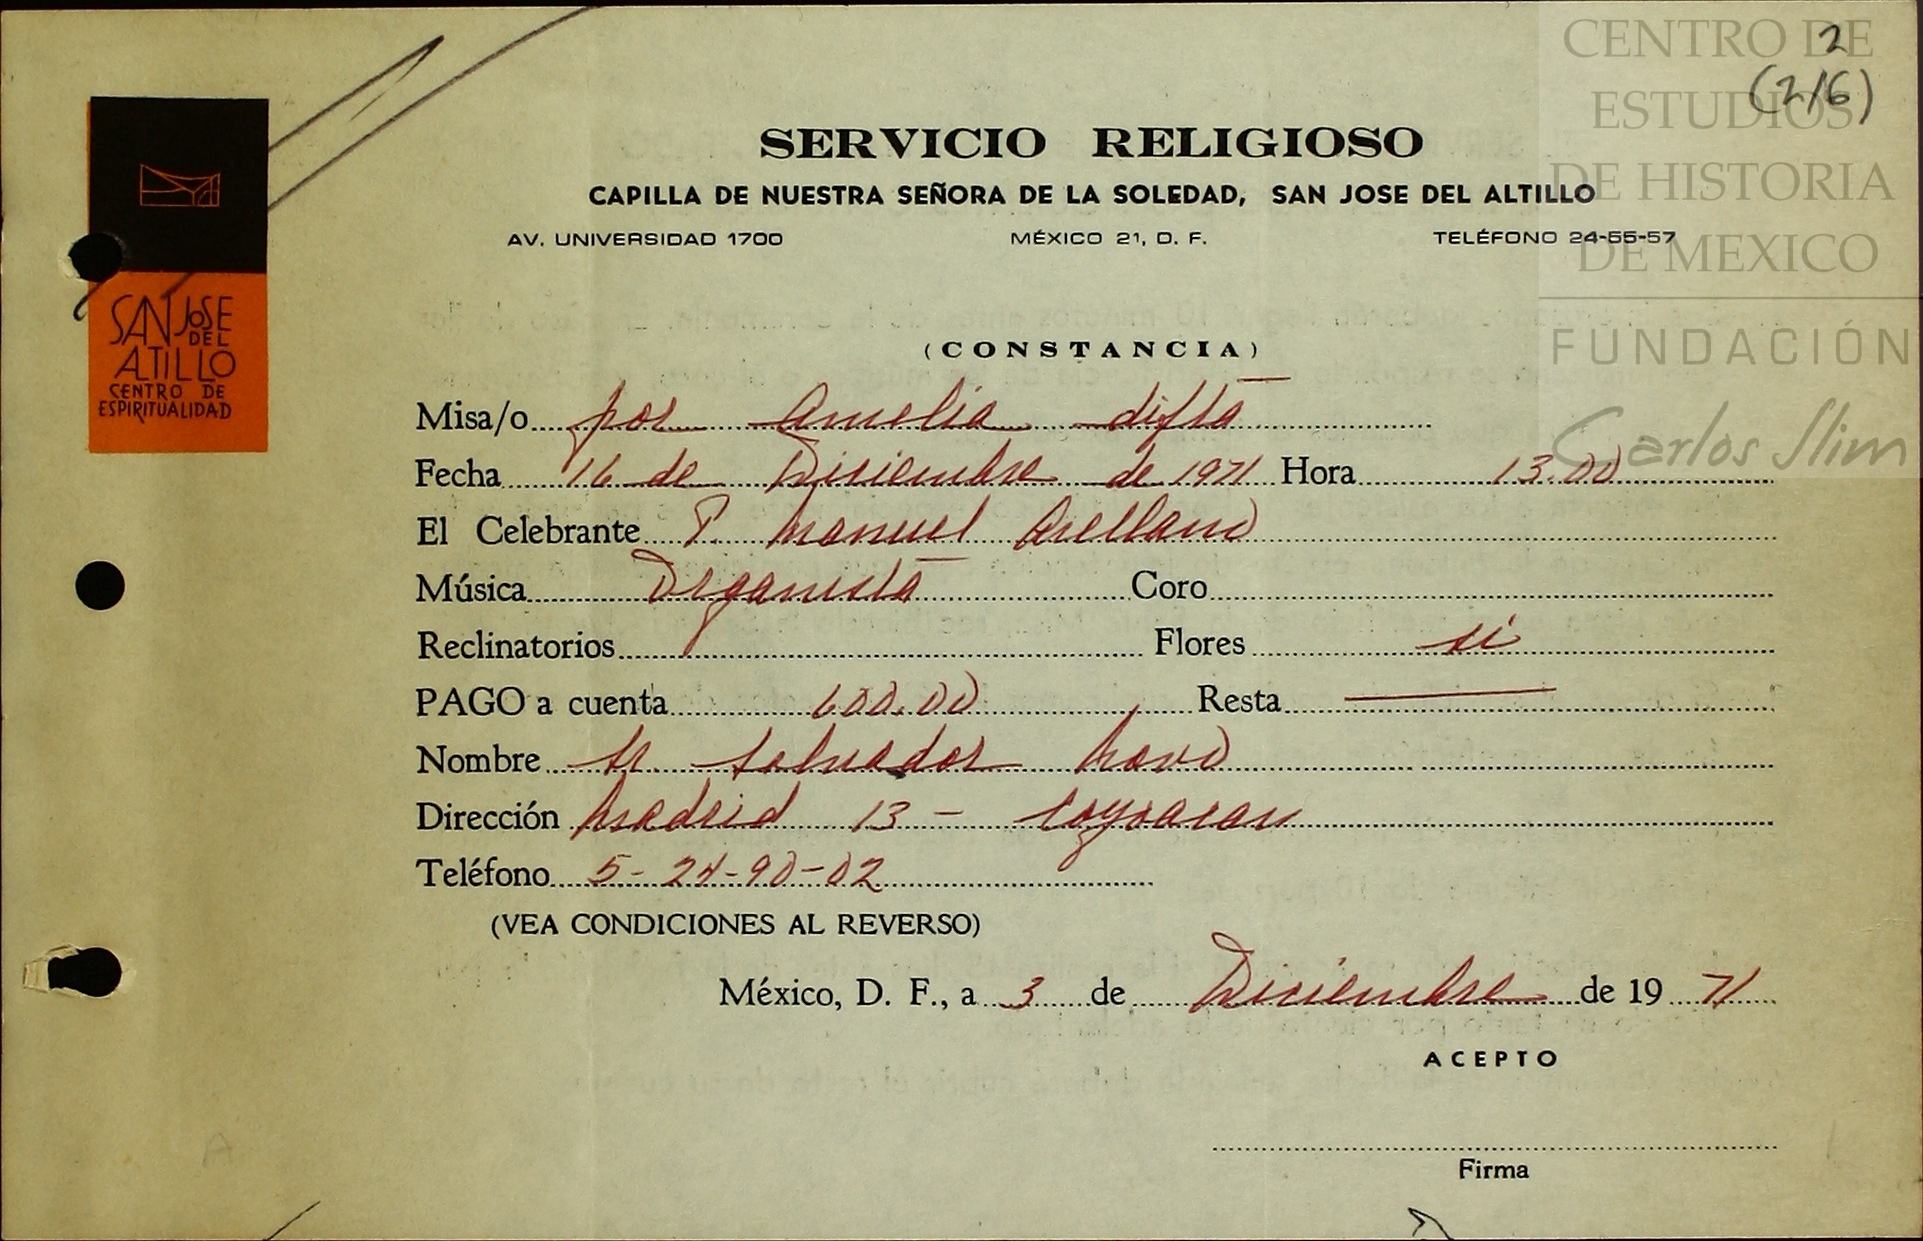 2
(2/6)
CENTRO DE
ESTUDIOS
DE HISTORIA
DE MEXICO
FUNDACIÓN
Carlos Slim
SAN JOSE
DEL
ALTILLO
CENTRO DE
ESPIRITUALIDAD
SERVICIO RELIGIOSO
CAPILLA DE NUESTRA SEÑORA DE LA SOLEDAD, SAN JOSE DEL ALTILLO
AV. UNIVERSIDAD 1700 MÉXICO 21, D. F. TELÉFONO 24-55-57
(CONSTANCIA)
Misa/o por Amelia difta
Fecha 16 de Diciembre de 1971 Hora 13.00
El Celebrante P. Manuel Arellano
Música Organista Coro
Reclinatorios Flores si
PAGO a cuenta 600.00 Resta —
Nombre Sr. Salvador Novo
Dirección Madrid 13 - Coyoacan
Teléfono 5-24-90-02
(VEA CONDICIONES AL REVERSO)
México, D. F., a 3 de Diciembre de 19 71
ACEPTO
Firma